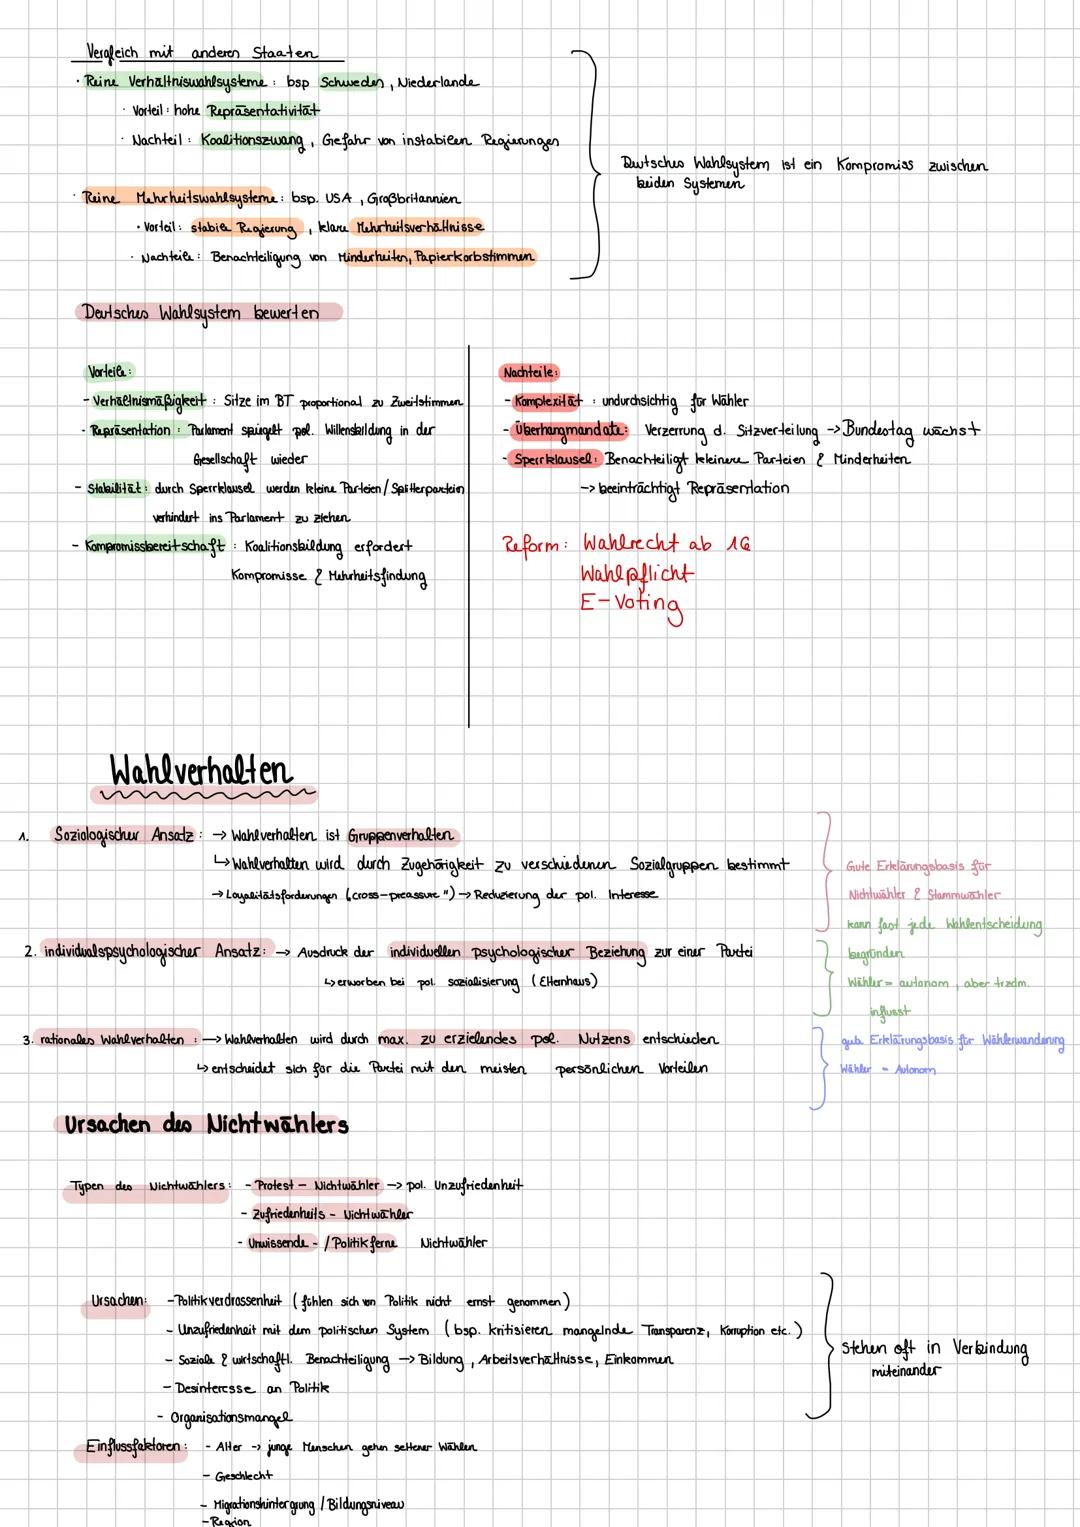 Vergleich mit anderen Staaten
· Reine Verhältniswahlsysteme : bsp Schweden , Niederlande
· Vorteil : hohe Repräsentativität
· Nachteil : Koalitionszwang , Gefahr von instabilen Regierungen
Deutsches Wahlsystem ist ein Kompromiss zwischen
beiden Systemen
· Reine Mehrheitswahlsysteme : bsp. USA , Großbritannien
· Vorteil : stabile Regierung , klare Mehrheitsverhältnisse
· Nachteile : Benachteiligung von Minderheiten, Papierkorbstimmen
Deutsches Wahlsystem bewerten
Vorteile :
- Verhältnismäßigkeit : Sitze im BT proportional zu Zweitstimmen
- Repräsentation : Parlament spiegelt pol. Willensbildung in der
Gesellschaft wieder
- Stabilität : durch Sperrklausel werden kleine Parteien / Splitterparteien
verhindert ins Parlament zu ziehen
- Kompromissbereitschaft : Koalitionsbildung erfordert
Kompromisse & Mehrheitsfindung
Nachteile :
- Komplexität : undurchsichtig für Wähler
- Überhangmandate : Verzerrung d. Sitzverteilung -> Bundestag wächst
- Sperrklausel : Benachteiligt kleinere Parteien & Minderheiten
-> beeinträchtigt Repräsentation
Reform : Wahlrecht ab 16
Wahlpflicht
E-Voting
Wahlverhalten
1. Soziologischer Ansatz : → Wahlverhalten ist Gruppenverhalten
↳ Wahlverhalten wird durch Zugehörigkeit zu verschiedenen Sozialgruppen bestimmt
→ Loyalitätsforderungen ( cross-preassure ") → Reduzierung der pol. Interesse
Gute Erklärungsbasis für
Nichtwähler & Stammwähler
2. individualspsychologischer Ansatz : → Ausdruck der individuellen psychologischer Beziehung zur einer Partei
↳ erworben bei pol. sozialisierung ( Elternhaus)
kann fast jede Wahlentscheidung
begründen
Wähler = autonom , aber trzdm.
influsst
3. rationales Wahlverhalten : → Wahlverhalten wird durch max. zu erzielendes pol. Nutzens entschieden
↳ entscheidet sich für die Partei mit den meisten persönlichen Vorteilen
Erklärungsbasis für Wählerwanderung
Wähler = Autonom
Ursachen des Nichtwählers
Typen des Nichtwählers : - Protest - Nichtwähler -> pol. Unzufriedenheit
- Zufriedenheits - Nichtwähler
- Unwissende - / Politikferne Nichtwähler
Ursachen : - Politikverdrossenheit ( fühlen sich von Politik nicht ernst genommen )
- Unzufriedenheit mit dem politischen System ( bsp. kritisieren mangelnde Transparenz, Korruption etc. )
- Soziale & wirtschaftl. Benachteiligung → Bildung , Arbeitsverhältnisse , Einkommen
- Desinteresse an Politik
- Organisationsmangel
stehen oft in Verbindung
miteinander
Einflussfaktoren : - Alter -> junge Menschen gehen seltener Wählen
- Geschlecht
- Migrationshintergrung / Bildungsniveau
- Region